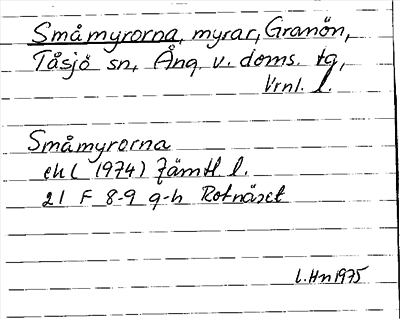 Småmyrorna, myrar, Granön,
Tåsjö sn, Ång. v. doms. tg,
Vrnl. l.
Småmyrorna
ek l (1974) Jämtl l.
21 F 8-9 g-h Rotnäset
l. Hn 1975